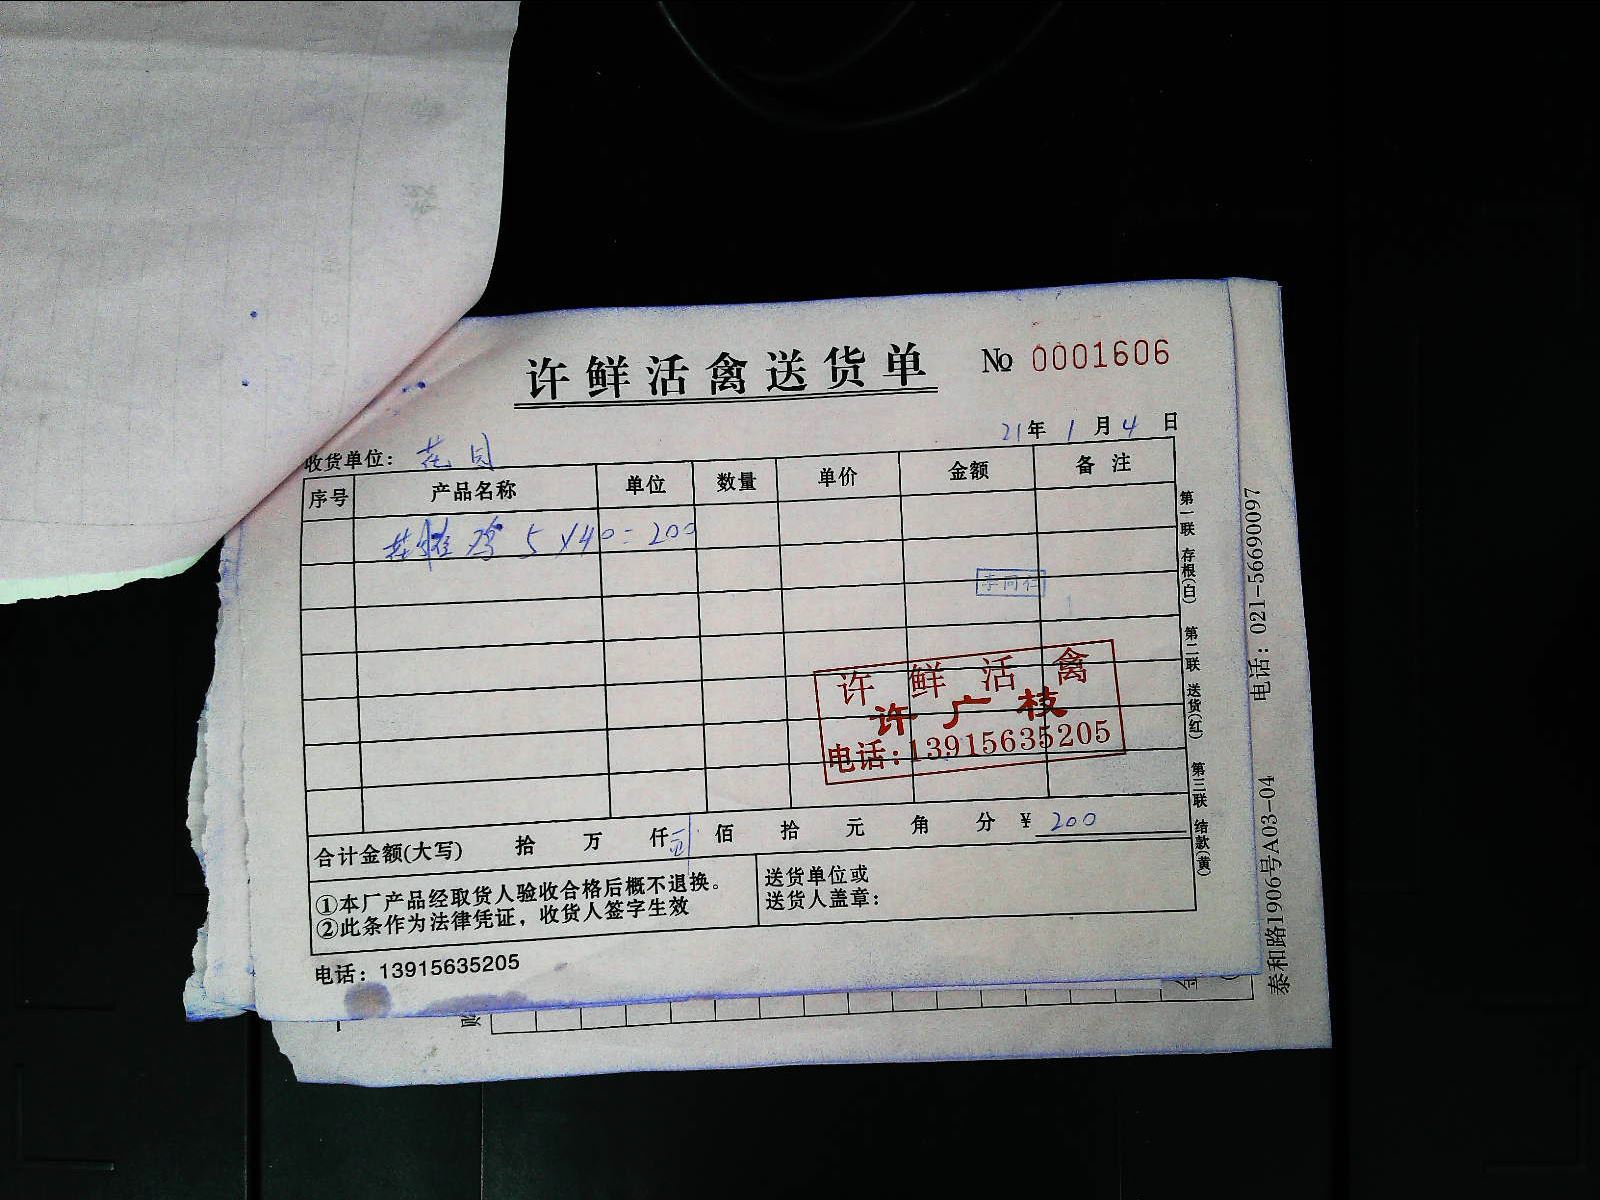 许鲜活禽送货单 № 0001606
21年 1月4日
收货单位: 花园
序号 产品名称 单位 数量 单价 金额 备注
鸡 5×40=200
许鲜活禽
许广枝
电话:13915635205
合计金额(大写) 拾 万 仟 佰 拾 元 角 分 ¥ 200
①本厂产品经取货人验收合格后概不退换。
②此条作为法律凭证，收货人签字生效
送货单位或
送货人盖章:
电话: 13915635205
第一联 存根(白) 第二联 送货(红) 第三联 结款(黄)
泰和路1906号A03-04 电话: 021-56690097